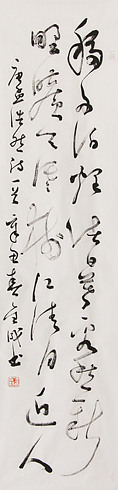 移舟泊煙渚日暮客愁新
野曠天低樹江清月近人
唐孟浩然詩一首辛丑春書